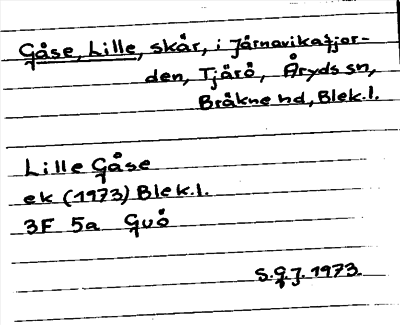 Gåse, Lille, skär, i Järnavikafjor-
den, Tjärö, Åryds sn,
Bräkne hd, Blek.l.
Lille Gåse
ek (1973) Blek.l.
3F 5a Guö
S.G.J. 1973